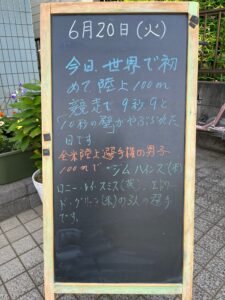 6月20日(火)
今日、世界で初
めて、陸上100m
競走で9秒9と
「10秒の壁」がやぶられた
日です
全米陸上選手権の男子
100mで"ジム・ハインズ"(米)
ロニー・レイ・スミス(英)、エドワー
ド・グリーン(米)の3人の選手
です。